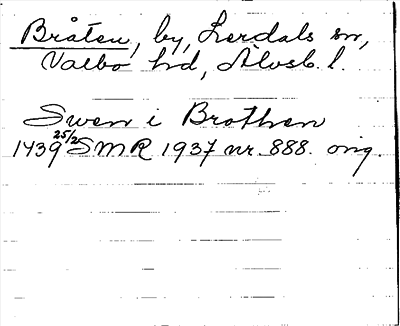 Bråten, by, Lerdals sn,
Valbo hd, Älvsb. l.
Swen i Brothen
1439 25/2 SMR 1937 nr. 888. orig.